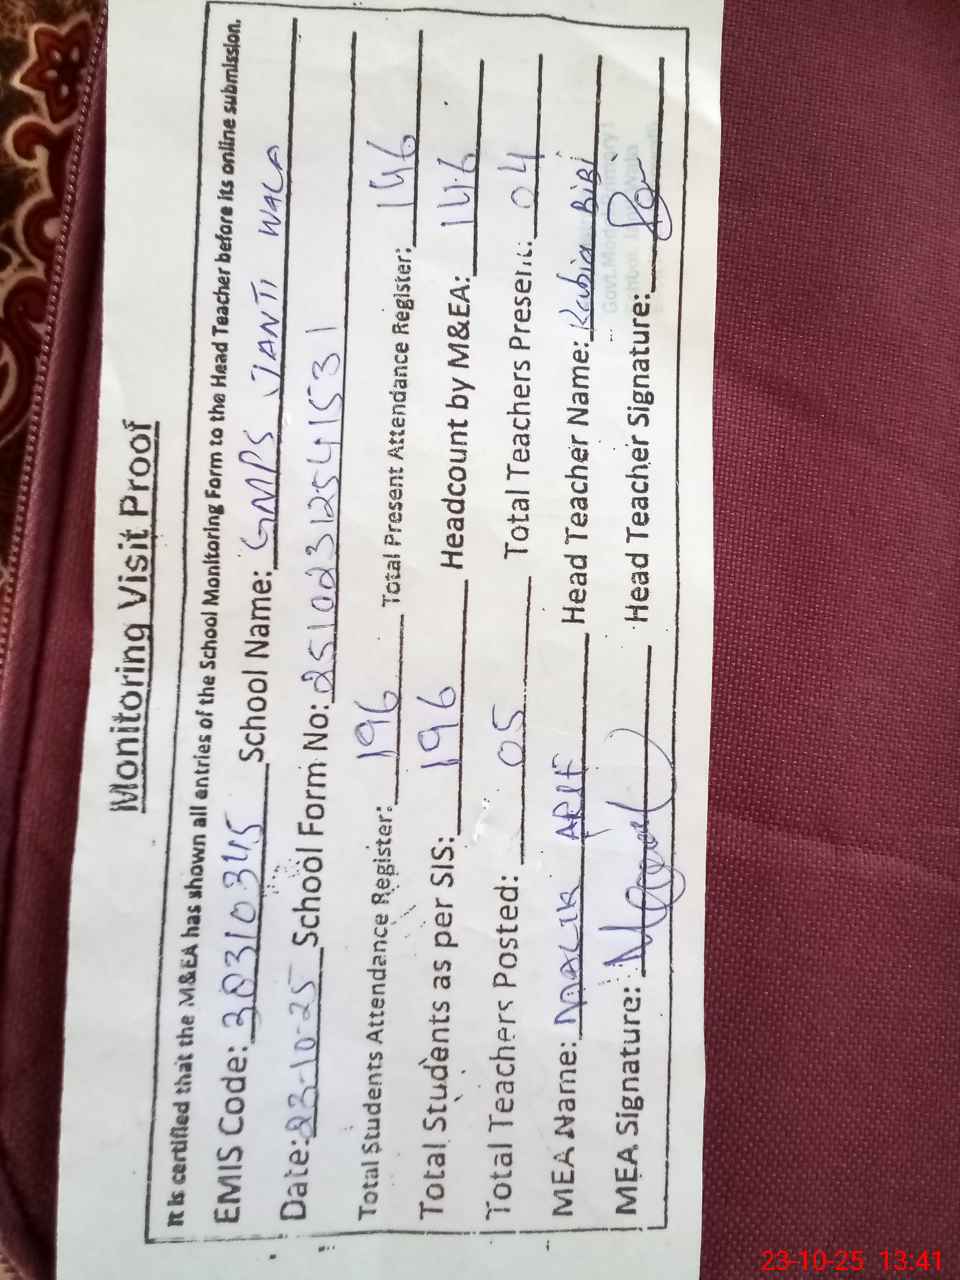 Monitoring Visit Proof
It is certified that the M&EA has shown all entries of the School Monitoring Form to the Head Teacher before its online submission.
EMIS Code: 38310345 School Name: GMPS JANTI WALA
Date: 23-10-25 School Form No: 251023125415531
Total Students Attendance Register: 196 Total Present Attendance Register: 146
Total Students as per SIS: 196 Headcount by M&EA: 146
Total Teachers Posted: 05 Total Teachers Present: 04
MEA Name: MALIK ARIF Head Teacher Name: Rabia BiBi
MEA Signature: Head Teacher Signature:
23-10-25 13:41